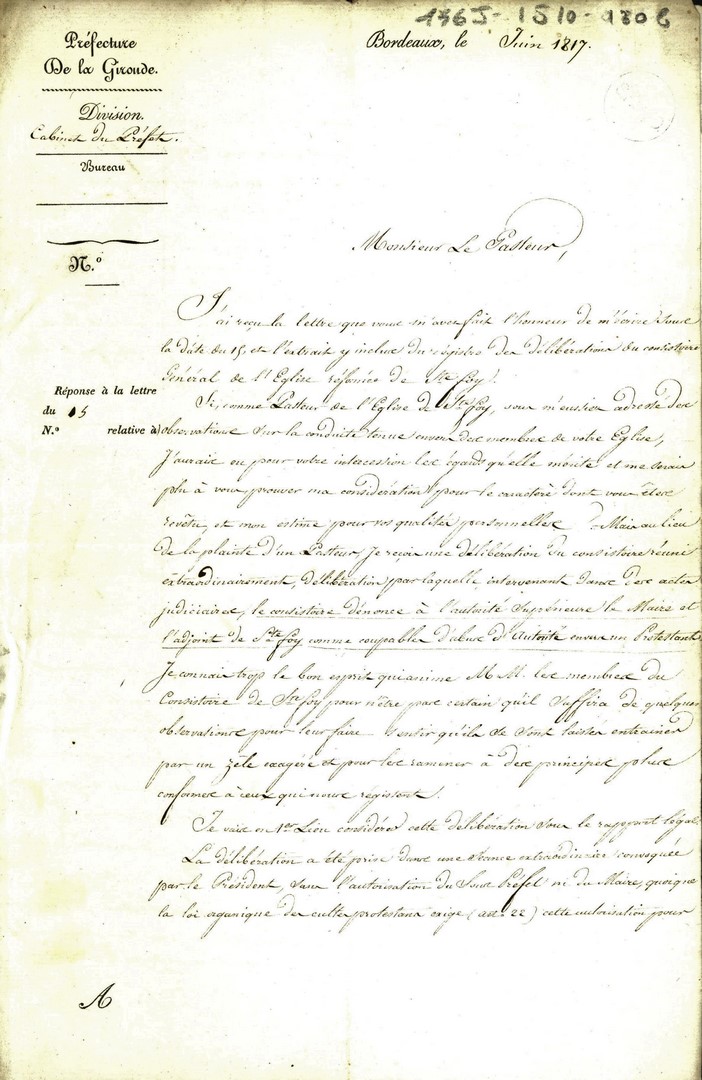 136J-1510-180C
Préfecture
De la Gironde.
Bordeaux, le Juin 1817.
Division.
Cabinet du Préfet.
Bureau
N.º
Monsieur Le Pasteur,
J'ai reçu la lettre que vous m'avez fait l'honneur de m'écrire sous
la date du 15, et l'extrait y inclus du régistre des délibérations du consistoire
Général de l'Eglise réformée de Ste foy.
Réponse à la lettre
du 15
N.º relative à
Si, comme Pasteur de l'Eglise de Ste foy, vous m'eussiez adressé des
observations sur la conduite tenue envers des membres de votre Eglise,
J'aurais eu pour votre intercession les égards qu'elle mérite et me serais
plu à vous prouver ma considération pour le caractère dont vous êtes
revêtu, et mon estime pour vos qualités personnelles. Mais au lieu
de la plainte d'un Pasteur, Je reçois une délibération du consistoire réuni
extraordinairement, délibération par laquelle, intervenant dans des actes
judiciaires, le consistoire dénonce à l'autorité Supérieure le Maire et
l'adjoint de Ste foy comme coupables d'abus d'Autorité envers un Protestant.
Je connais trop le bon esprit qui anime M.M. les membres du
Consistoire de Ste foy pour n'être pas certain qu'il suffira de quelques
observations pour leur faire sentir qu'ils se sont laissés entrainer
par un zèle exagéré et pour les ramener à des principes plus
conformes à ceux qui nous régissent.
Je vais en 1er Lieu considérer cette délibération sous le rapport légal
La délibération a été prise dans une séance extraordinaire convoquée
par le Président, sans l'autorisation du Sous Préfet ni du Maire, quoique
la loi organique des cultes protestans exige (art. 22) cette autorisation pour
A